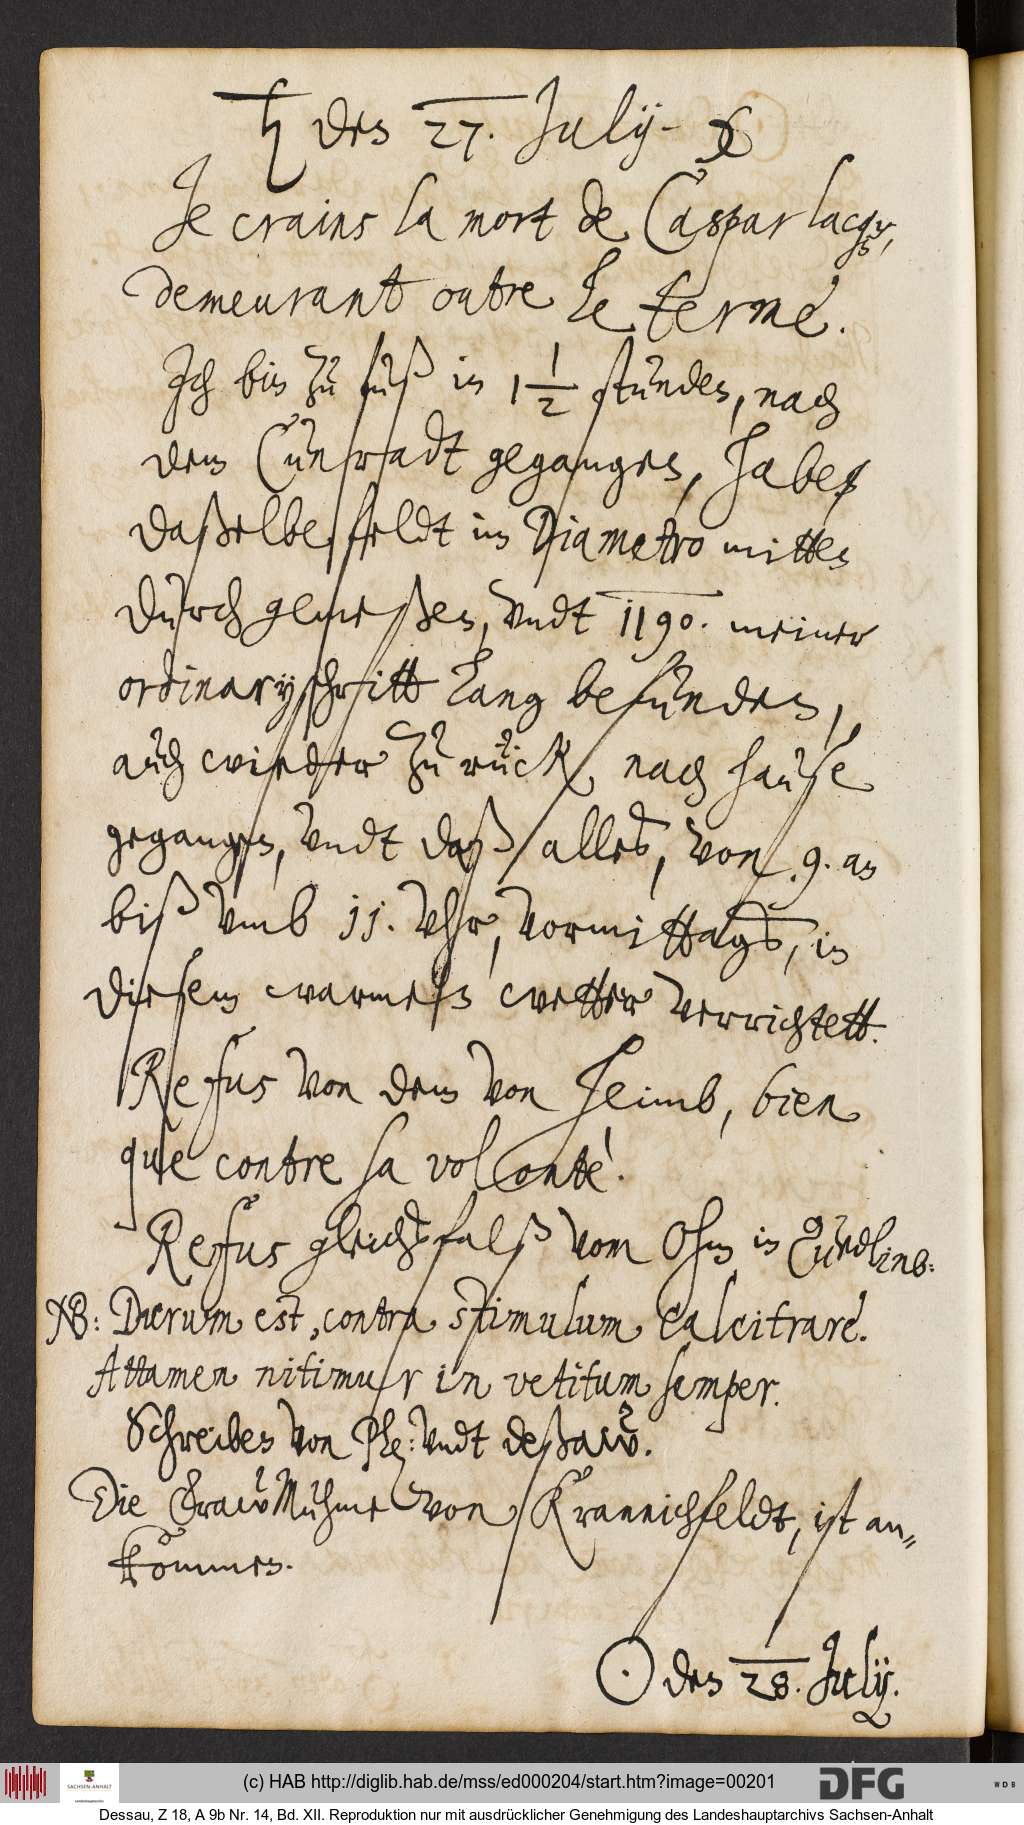 ♄ den 27. Julÿ. ☾
Je crains la mort de Caspar Jacqs,
demeurant outre le terme.
Ich bin zu fuß in 1½ stunden, nach
dem Cunradt gegangen, habe
daßelbe feldt im Diametro mitten
durch gemeßen, vndt 1190. meiner
ordinarÿ schritt lang befunden,
auch wieder zurück, nach hause
gegangen, vndt daß alles, von 9. an
biß vmb 11. vhr, vormittags, in
diesem warmen wetter verrichtett.
Refus von dem von Heimb, bien
que contre sa volonté.
Refus gleichsfalß vom Ohm in Quedlinb:
NB: Durum est, contra stimulum calcitrare.
Attamen nitimur in vetitum semper.
Schreiben von Ple: vndt deßaw.
Die Fraw Muhme von Krannichfeldt, ist an-
kommen.
☉ den 28. Julÿ.
(c) HAB http://diglib.hab.de/mss/ed000204/start.htm?image=00201
SACHSEN-ANHALT
DFG
WDB
Dessau, Z 18, A 9b Nr. 14, Bd. XII. Reproduktion nur mit ausdrücklicher Genehmigung des Landeshauptarchivs Sachsen-Anhalt